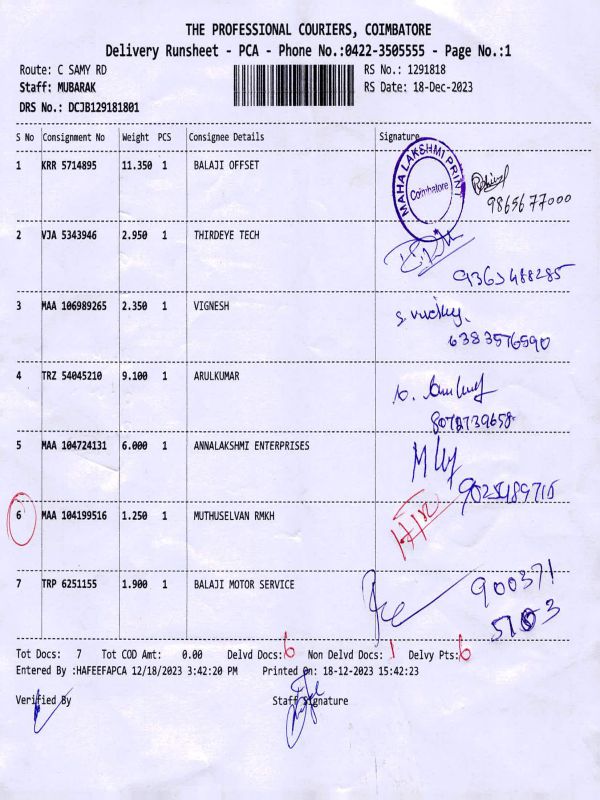 THE PROFESSIONAL COURIERS, COIMBATORE
Delivery Runsheet - PCA - Phone No.:0422-3505555 - Page No.:1
Route: C SAMY RD RS No.: 1291818
Staff: MUBARAK RS Date: 18-Dec-2023
DRS No.: DCJB129181801
S No Consignment No Weight PCS Consignee Details Signature
1 KRR 5714895 11.350 1 BALAJI OFFSET
MAHA LAKSHMI PRINT
Coimbatore
9865677000
2 VJA 5343946 2.950 1 THIRDEYE TECH
9363488285
3 MAA 106989265 2.350 1 VIGNESH
6383576590
4 TRZ 54045210 9.100 1 ARULKUMAR
8072739658
5 MAA 104724131 6.000 1 ANNALAKSHMI ENTERPRISES
6 MAA 104199516 1.250 1 MUTHUSELVAN RMKH
7 TRP 6251155 1.900 1 BALAJI MOTOR SERVICE
900371
Tot Docs: 7 Tot COD Amt: 0.00 Delvd Docs: 6 Non Delvd Docs: 1 Delvy Pts: 6
Entered By :HAFEEFAPCA 12/18/2023 3:42:20 PM Printed On: 18-12-2023 15:42:23
Verified By Staff Signature